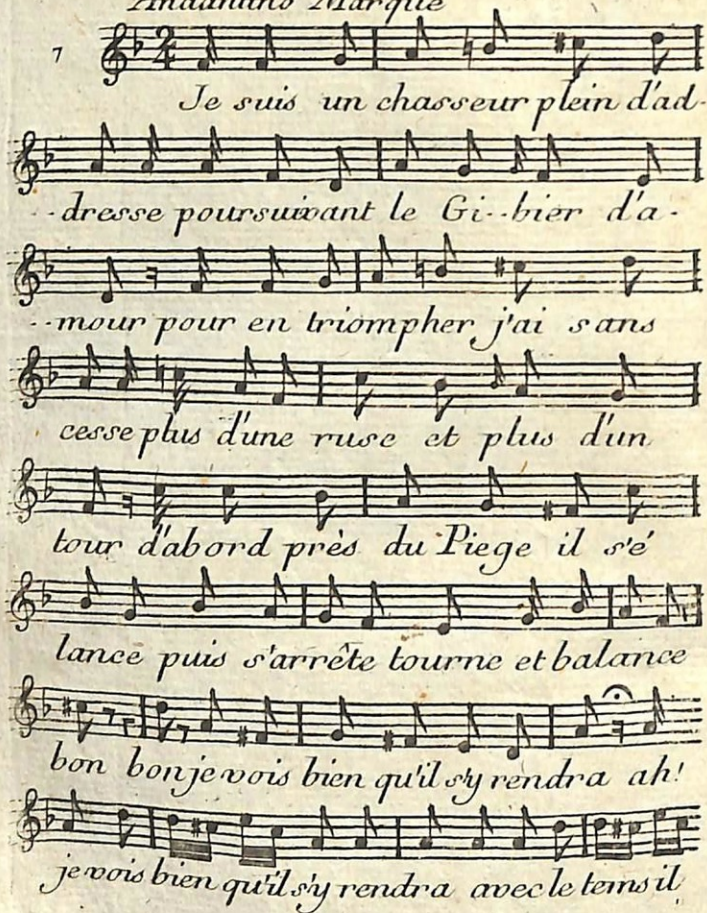 Andantino Marqué
7
Je suis un chasseur plein d'ad-
--dresse poursuivant le Gi--bier d'a-
--mour pour en triompher j'ai sans
cesse plus d'une ruse et plus d'un
tour d'abord près du Piege il s'é
lance puis s'arrête tourne et balance
bon bon je vois bien qu'il s'y rendra ah!
je vois bien qu'il s'y rendra avec le tems il